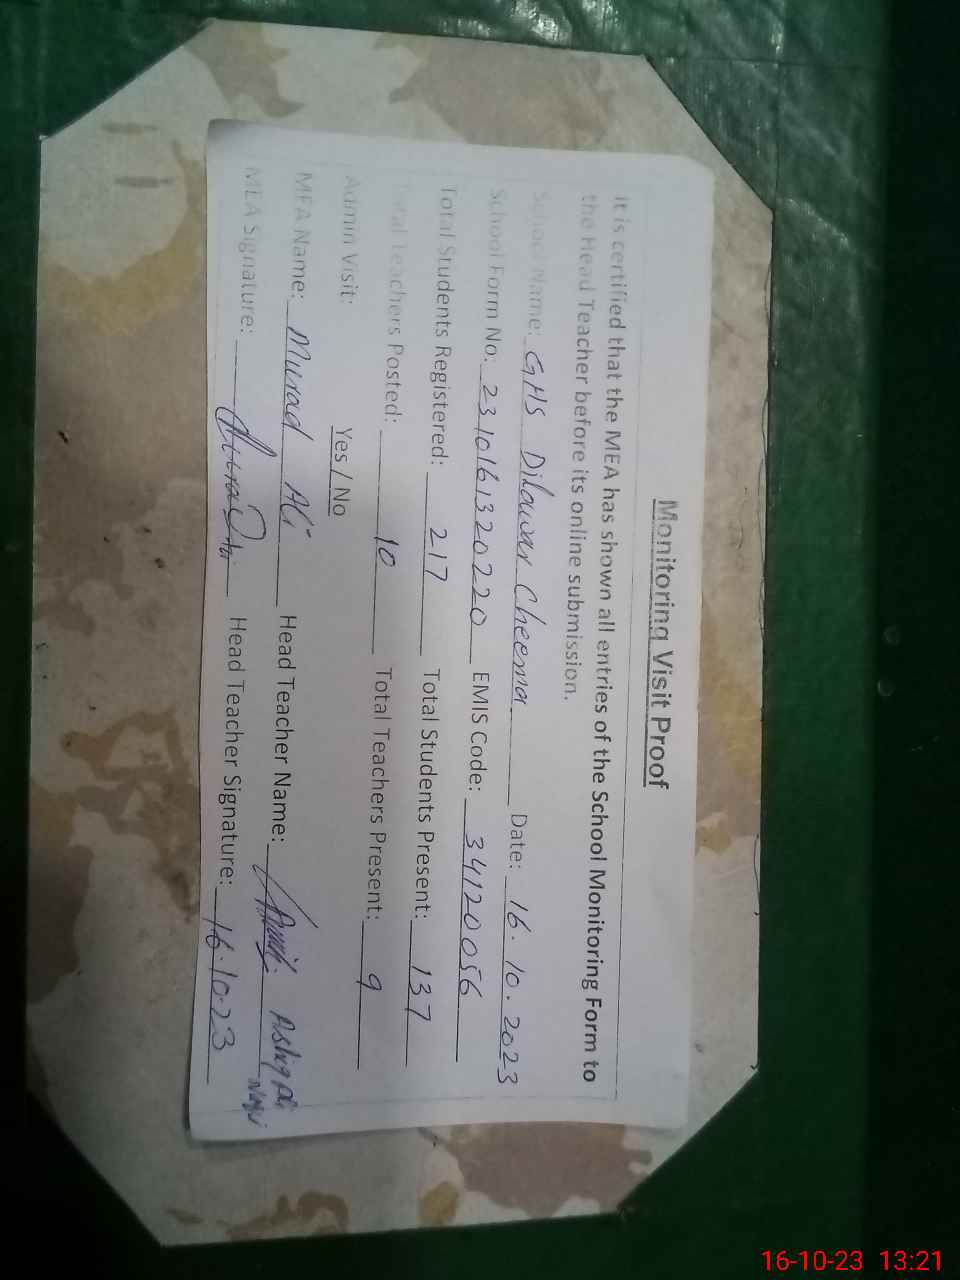 Monitoring Visit Proof
It is certified that the MEA has shown all entries of the School Monitoring Form to
the Head Teacher before its online submission.
School Name: GHS Dilawar Cheema Date: 16.10.2023
School Form No: 2310161320220 EMIS Code: 34120056
Total Students Registered: 217 Total Students Present: 137
Total Teachers Posted: 10 Total Teachers Present: 9
Admin Visit: Yes / No
MEA Name: Murad Ali Head Teacher Name: Ashiq Ali
MEA Signature: Head Teacher Signature: 16.10.23
16-10-23 13:21